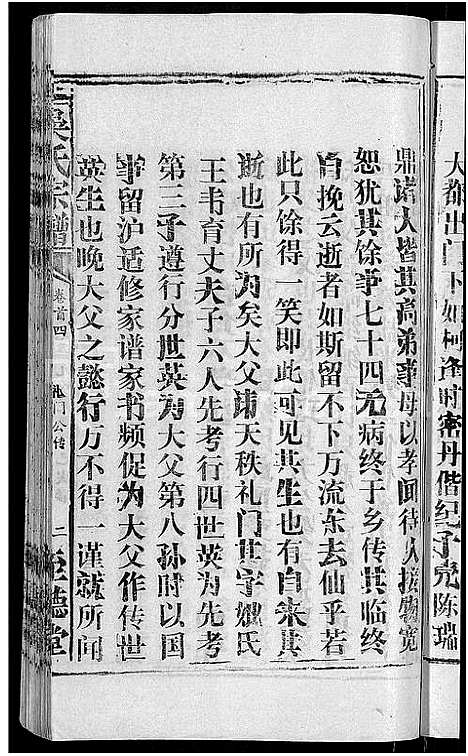 大都出门下如柯逢时密丹偕纪子尧陈瑞
鼎诸人皆其高弟事母以孝闻待人接物宽
恕犹其馀事七十四无病终于乡传其临终
自挽云逝者如斯留不下万流东去仙乎若
此只馀得一笑即此可见其生也有自来其
逝也有所为矣大父讳天秩礼门其字娶氏
王韦育丈夫子六人先考行四世英为先考
第三子遵行分世英为大父第八孙时以国
事留沪适修家谱家书频促为大父作传世
英生也晚大父之懿行万不得一谨就所闻
吴氏宗谱
卷首四
礼门公传
二
至德堂